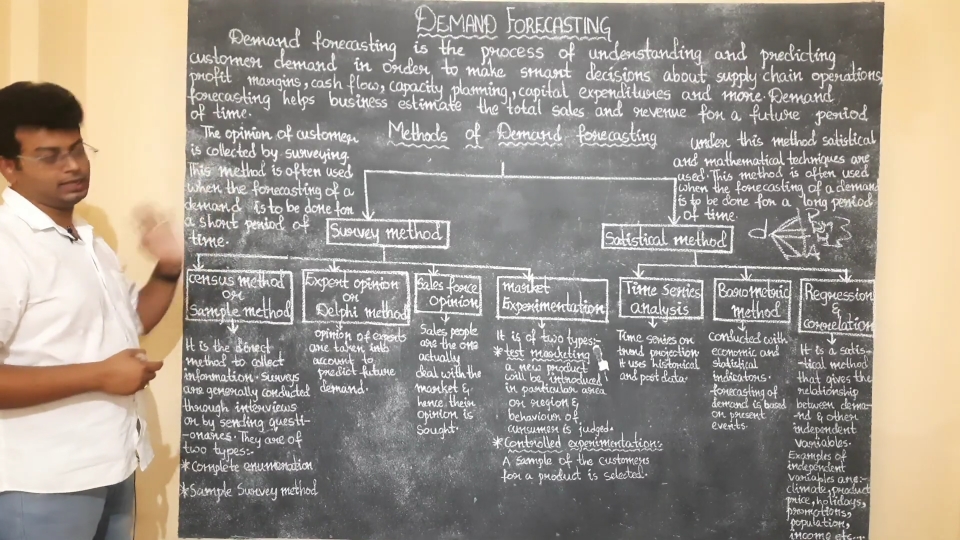 DEMAND FORECASTING
Demand forecasting is the process of understanding and predicting
customer demand in order to make smart decisions about supply chain operations,
profit margins, cash flow, capacity planning, capital expenditures and more. Demand
forecasting helps business estimate the total sales and revenue for a future period
of time.
Methods of Demand forecasting
The opinion of customer
is collected by surveying.
This method is often used
when the forecasting of a
demand is to be done for
a short period of
time.
under this method satistical
and mathematical techniques are
used. This method is often used
when the forecasting of a demand
is to be done for a long period
of time.
d
P
A
Survey method
Satistical method
census method
or
Sample method
It is the direct
method to collect
information. Surveys
are generally conducted
through interviews
or by sending questi-
-onaires. They are of
two types:-
*Complete enumeration
*Sample Survey method
Expert opinion
or
Delphi method
opinion of experts
are taken into
account to
predict future
demand.
Sales force
opinion
Sales people
are the one
actually
deal with the
market &
hence their
opinion is
sought.
market
Experimentation
It is of two types:-
* test marketing
a new product
will be introduced
in particular area
or region &
behaviour of
cunsumer is judged.
*Controlled experimentation:-
A sample of the customers
for a product is selected.
Time series
analysis
Time series or
trend projection
it uses historical
and past data.
Barometric
method
conducted with
economic and
statistical
indicators.
forecasting of
demand is based
on present
events.
Regression
&
Correlation
It is a satis-
-tical method
that gives the
relationship
between dema-
-nd & other
independent
variables.
Examples of
independent
variables are:-
climate, product
price, holidays,
promotions,
population,
income etc....